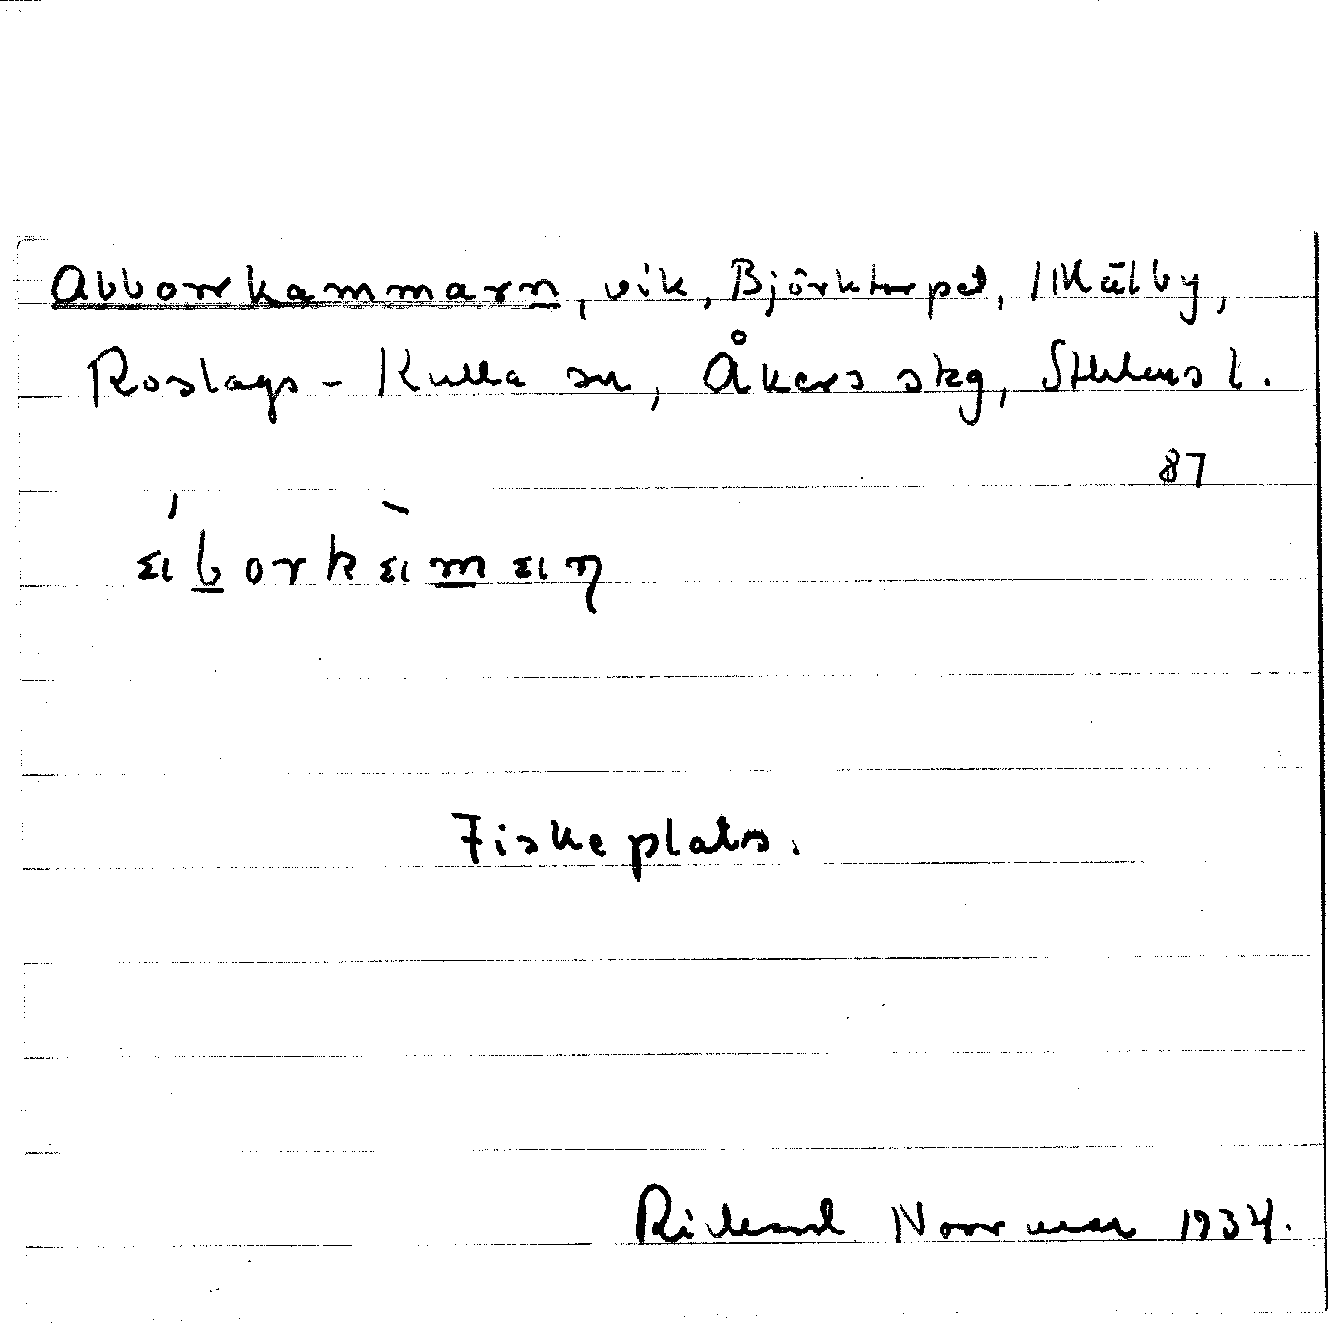 Abborrkammarn, vik, Björktorpet, Mälby,
Roslags-Kulla sn, Åkers skg, Sthlms l.
87
Fiskeplats.
Rickard Norrman 1934.